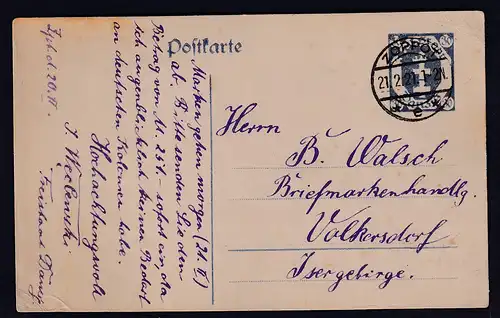 Postkarte
ZOPPOT
21.2.21.
e
Herrn
B. Walsch
Briefmarkenhandlg
Volkersdorf
Isergebirge.
Marken gehen morgen (21. II)
ab. Bitte senden Sie den
Betrag von M. 251.- sofort ein, da
ich augenblicklich keinen Bedarf
an deutschen Kolonien habe.
Hochachtungsvoll
Freistaat Danzig
d 20. II.